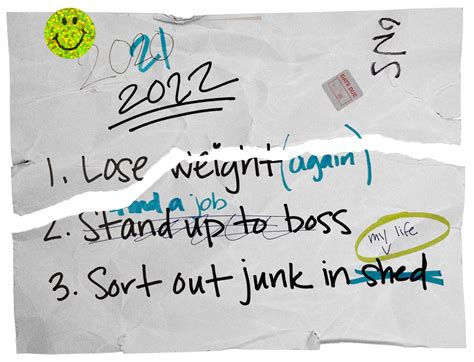 2021
2022
DATE DUE
1. Lose weight (again)
Find a job
2. Stand up to boss
my life
3. Sort out junk in shed